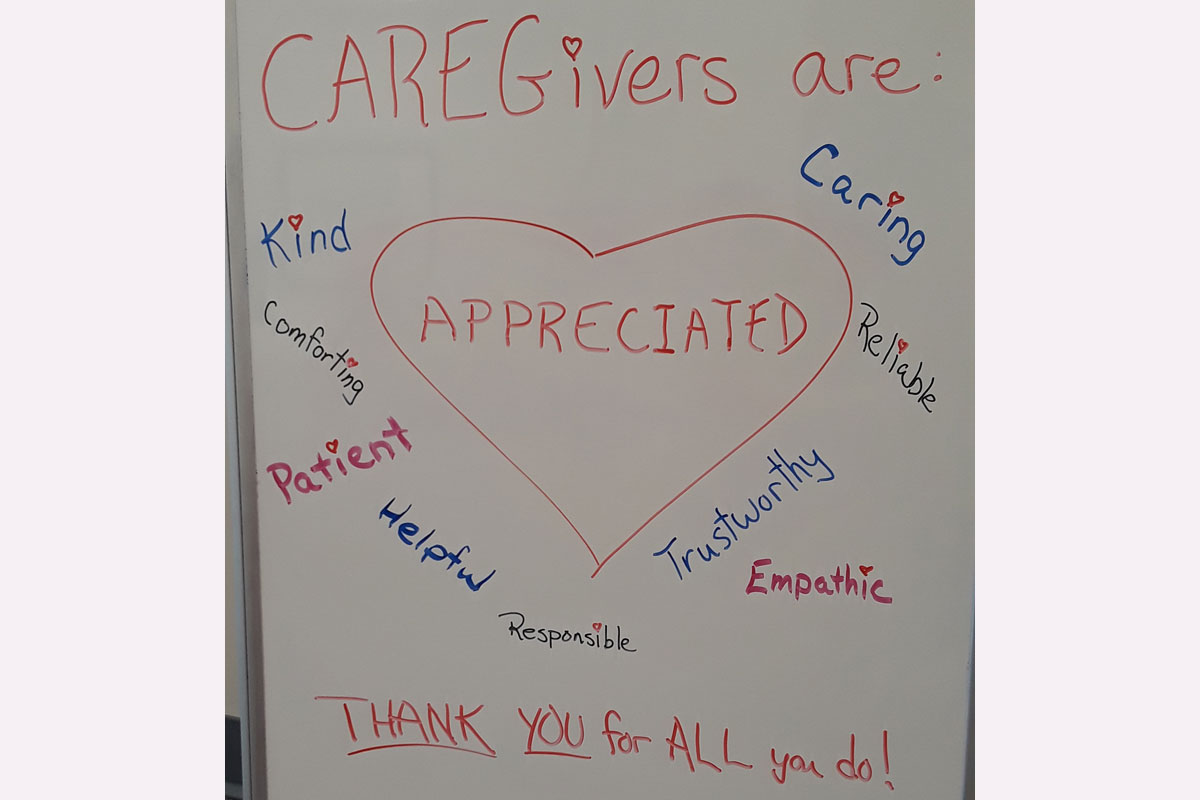 CAREGivers are:
Caring
Kind
APPRECIATED
Comforting
Reliable
Patient
Helpful
Trustworthy
Empathic
Responsible
THANK YOU for ALL you do!